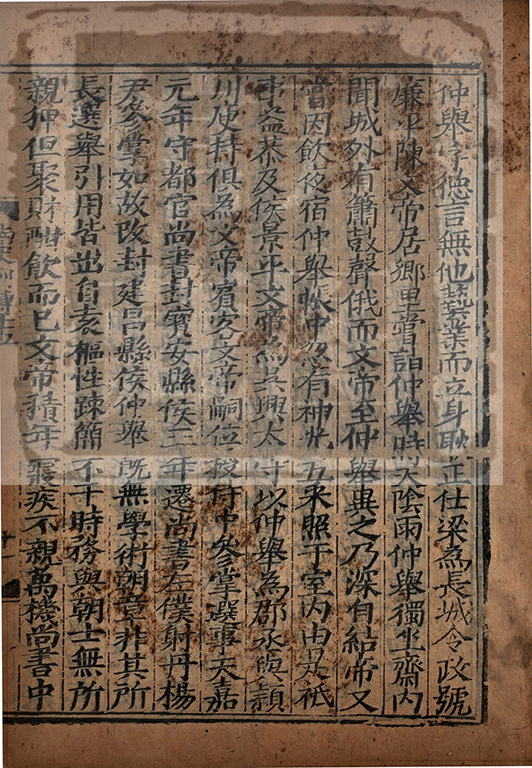 仲舉字德言無他藝業而立身耿正仕梁為長城令政號
廉平陳文帝居鄉里嘗詣仲舉時天陰雨仲舉獨坐齋內
聞城外有簫鼓聲俄而文帝至仲舉異之乃深自結帝又
嘗因飲夜宿仲舉帳中忽有神光五采照于室內由是祗
事益恭及侯景平文帝為吳興太守以仲舉為郡丞與潁
川庾持俱為文帝賓客文帝嗣位授侍中參掌選事天嘉
元年守都官尚書封寶安縣侯三年遷尚書左僕射丹楊
尹參掌如故改封建昌縣侯仲舉既無學術朝章非其所
長選舉引用皆出自袁樞性疎簡不干時務與朝士無所
親狎但聚財酣飲而已文帝積年寢疾不親萬機尚書中